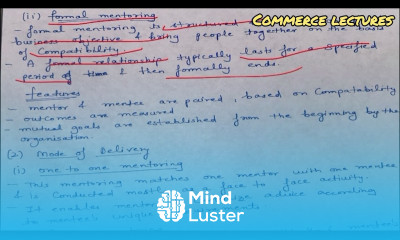 Commerce lectures
(ii) formal mentoring
- formal mentoring is structured
business objective & bring people together on the basis
of Compatibility.
- A formal relationship typically lasts for a specified
period of time & then formally ends.
features
- mentor & mentee are paired, based on Compatability
- outcomes are measured
- mutual goals are established from the beginning by the
organisation.
(2) Mode of Delivery
(i) one to one mentoring
- This mentoring matches one mentor with one mentee
& is conducted mostly as a face to face activity.
- It enables mentor advice according
to unique requirements
Mind
Luster